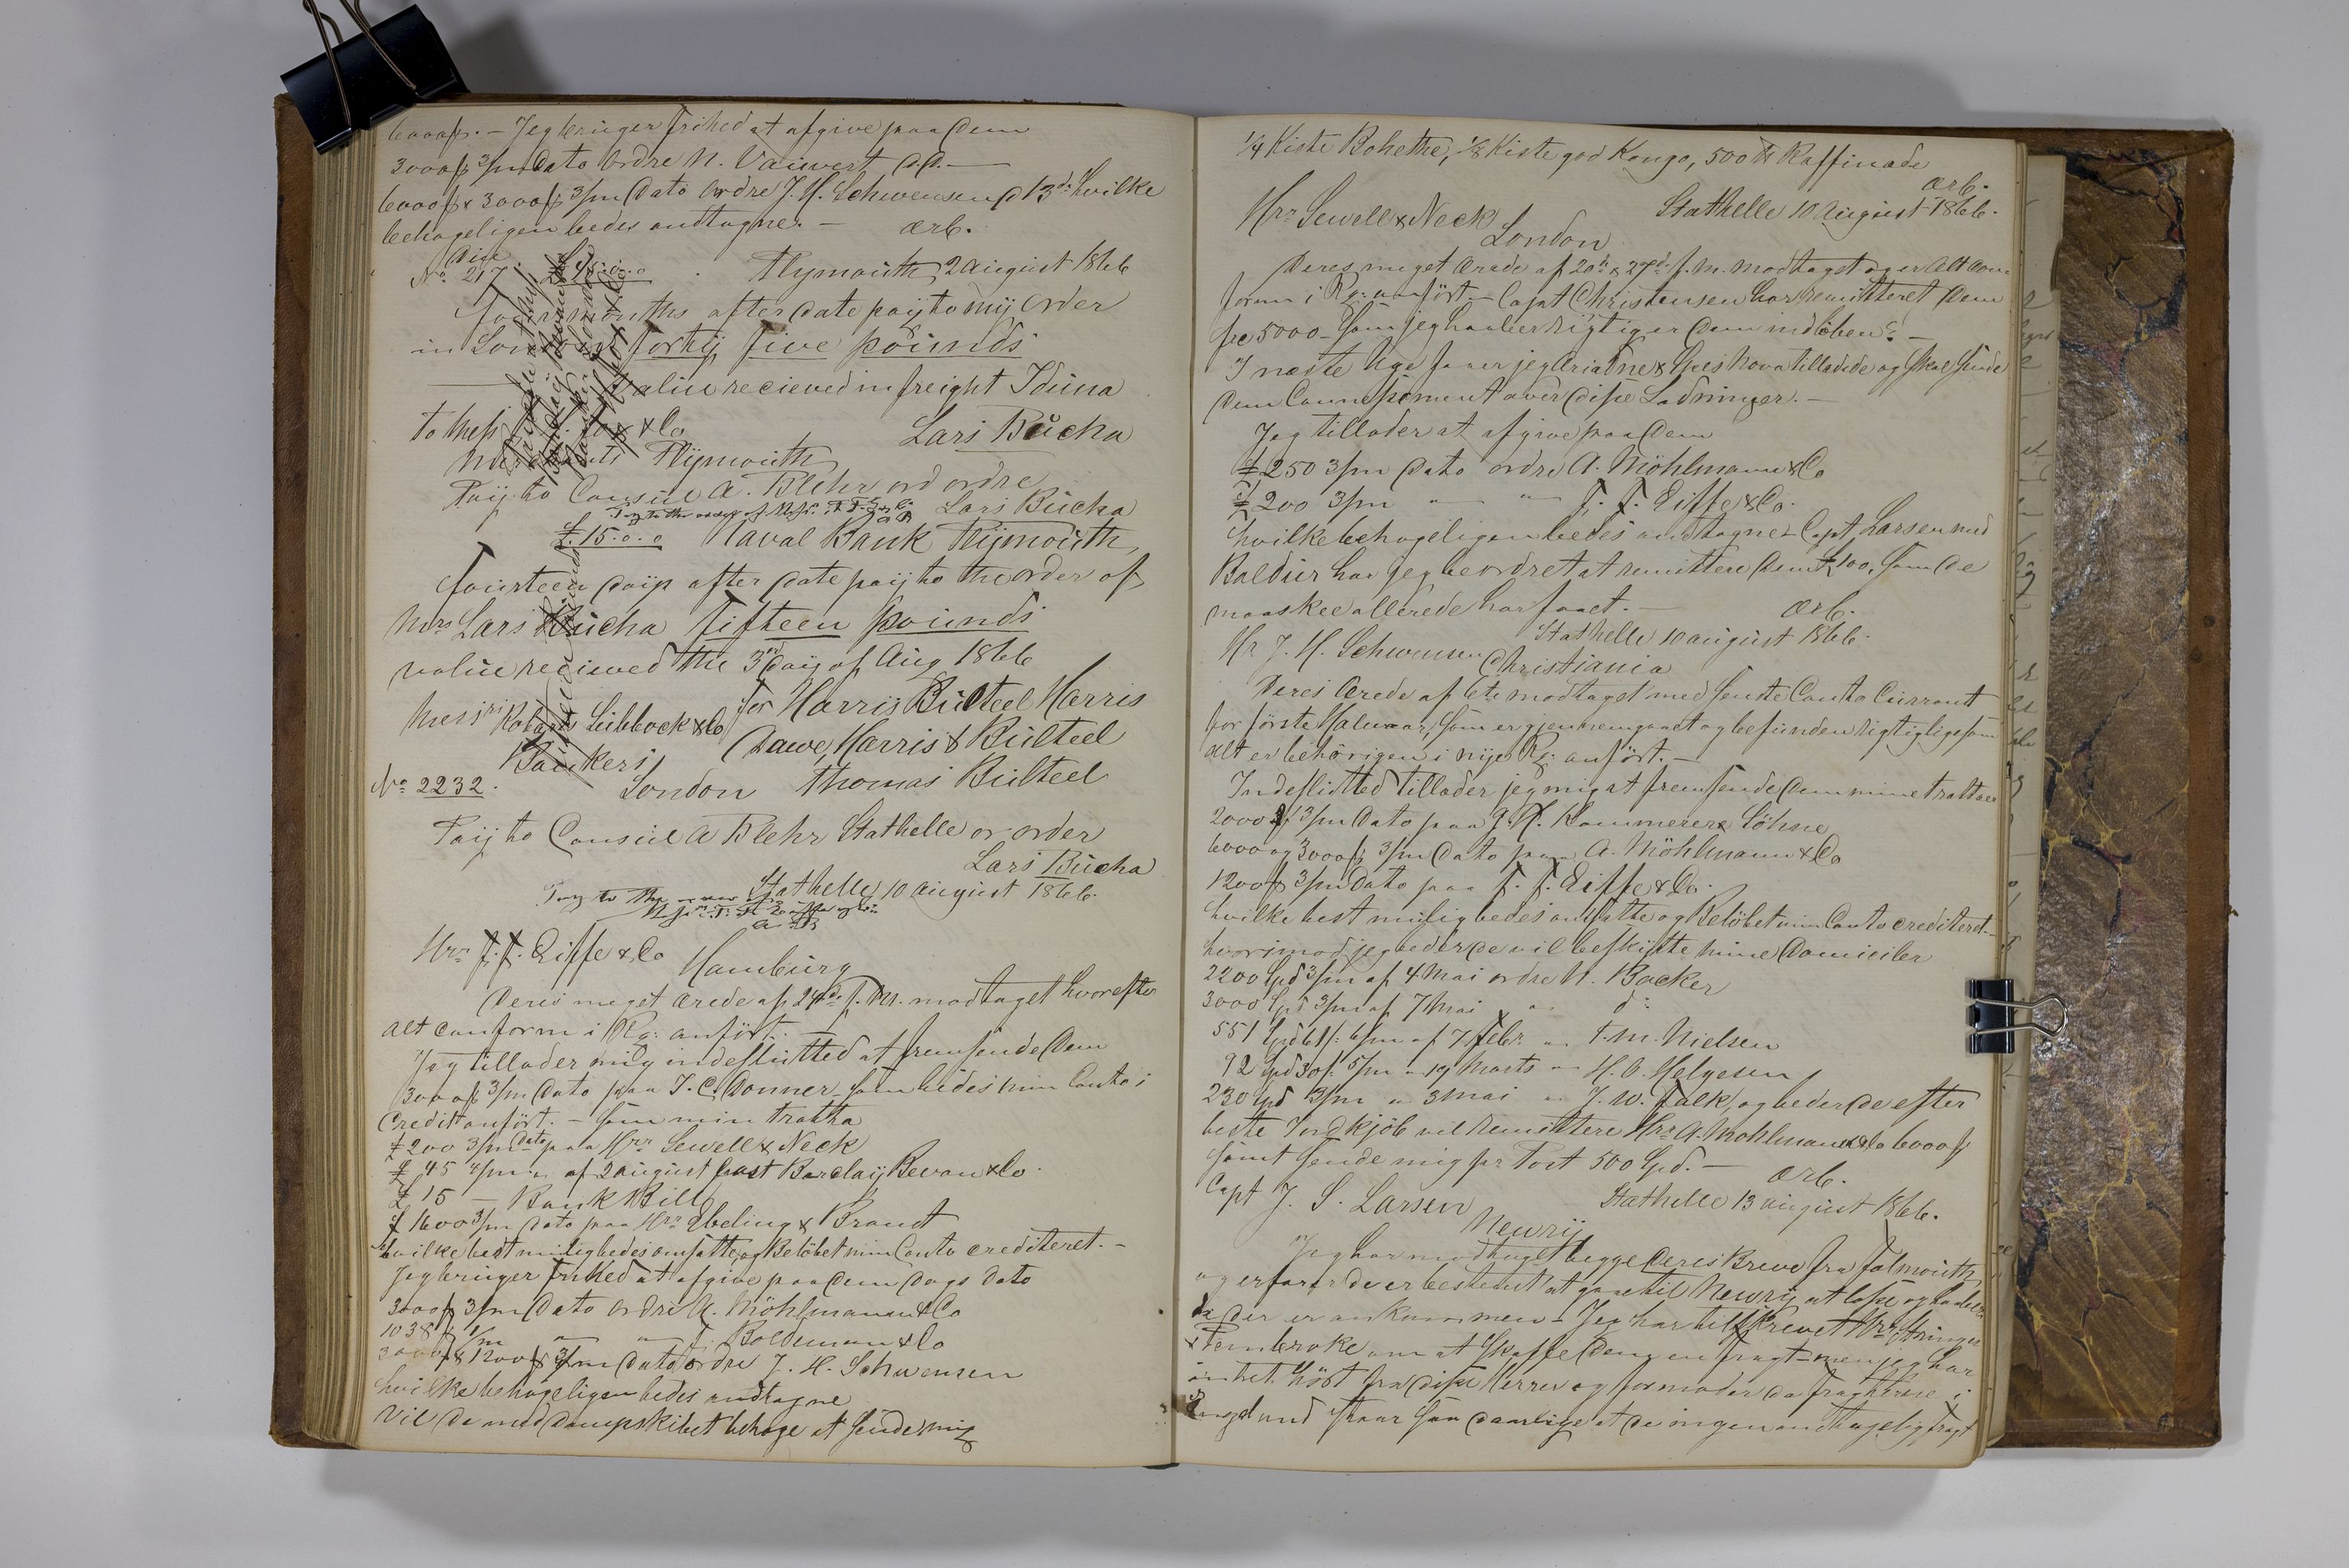 6000 – Jeg bruger frihed at afgive paa Dem
3000 3/m Dato Ordre N. Vauvert
6000 & 3000 3/m Dato Ordre J. H. Schwensen d 3d: hvilke
behageligen bedes andtagne. – ærb.
No. 217 £ 45.0.0 Plymouth 2 august 1866
Four months after date pay to my Order
in London forty five pounds
value recieved in freight Iduna
to Mess & Co Lars Bucha
Plymouth
Pay to Consul A. Blehr ord ordre
Pay to the order of Lars Bucha
£. 15.0.0 Naval Bank Plymouth
Fourteen days after date pay to the order of
Mrs Lars Bucha fifteen pounds
value recieved the 3rd day of Aug 1866
Messrs Robarts Lubbock & Co for Harris Bulteel Harris
Bankers Dawe, Harris & Bulteel
No 2232. London Thomas Bulteel
Pay to Consul A Blehr Stathelle or order
Lars Bucha
Pay to the Stathelle, 10 august 1866.
Hrr F. F. Eiffe & Co Hamburg
Deres meget ærede af 24de f. M. modtaget hvorefter
alt conform i Rg: anført.
Jeg tillader mig indeslutted at fremsende Dem
3000 3/m Dato paa J. C. Donner som bedes min Conto i
Credit anført. – som min tratta
£ 200 3/m Dato paa Hrr Sewell & Neck
£ 45 4/m af 2 august Barclay Bevan & Co.
£ 15 — Bank Bill
1600 3/m Dato paa Hrr Ebeling & Brandt
hvilke bedst muligt bedes omsatte, og Beløbet min Conto crediteret. –
Jeg bruger frihed at afgive paa Dem Dags Dato
3000 3/m Dato Ordre A. Möhlmann & Co
1038 Boldeman & Co
3000 & 1200 3/m Dato Ordre J. H. Schwensen
hvilke behageligen bedes andtagne
Vil De med Dampskibet behage at sende mig
1/4 Kiste Bohethe, 1/8 Kiste god Kongo, 500 Raffinade
ærb.
Hrr Sewell & Neck Stathelle 10 August 1866.
London
Deres meget ærede af 20de & 27d f. M. modtaget og er alt con
form i Rg: anført. – Capt Christensen har remitteret Dem
frc 5000 – som jeg haaber rigtig er Dem indløben. –
I næste Uge faaer jeg Ariadne & Spes Nova tilladede og skal sende
Dem Connossement over disse Ladninger. –
Jeg tillader at afgive paa Dem
£ 250 3/m Dato ordre A. Möhlmann & Co
£ 200 3/m " " F. F. Eiffe & Co.
hvilke behageligen bedes andtagne – Capt. Larsen med
Baldur har jeg beordret at remittere Dem £ 100, som De
maaskee allerede har faaet. – ærb.
Stathelle 10 august 1866.
Hr. J. H. Schwensen Christiania
Deres ærede af 6te modtaget med sendte Conto Current
for første Halvaar, som er gjennemgaaet og befunden rigtig ligesom
alt er behørigen i nye Rg: anført. –
Indesluttet tillader jeg mig at fremsende Dem mine tratter
2000 3/m Dato paa Kammerers Söhne
6000 og 3000 3/m Dato paa A. Möhlmann & Co
1200 3/m Dato paa F. F. Eiffe & Co.
hvilke best mulig bedes omsatte og Beløbet min Conto crediteret. –
hvorimod jeg beder De vil beskytte mine Domiciler
2200 Spd 3/m af 4 Mai ordre N. Backer
3000 Spd 3/m af 7 Mai " d:
551 Spd 61 s: 6/m af 7 Febr " F. M. Nielsen
92 Spd 30 s: 5/m " 19 Marts " H. O. Helgesen
230 Spd 3/m " 3 Mai " J. W. Falk, og beder De efter
beste Indkjøb vil remittere Hrr A. Möhlmann & Co 6000
samt sende mig pr Post 500 Spd. – ærb.
Capt J. S. Larsen Stathelle 13 august 1866.
Newry
Jeg har modtaget begge Deres Breve fra Falmouth
og erfarer De er bestemt at gaae til Newry at losse og haaber
De der er ankommen – Jeg har tilskrevet Hrr
& Pembroke om at skaffe Dem en fragt – men jeg har
intet hørt fra disse Herrer og formoder da fragterne i
England staar saa daarlige at De ingen andtagelig fragt